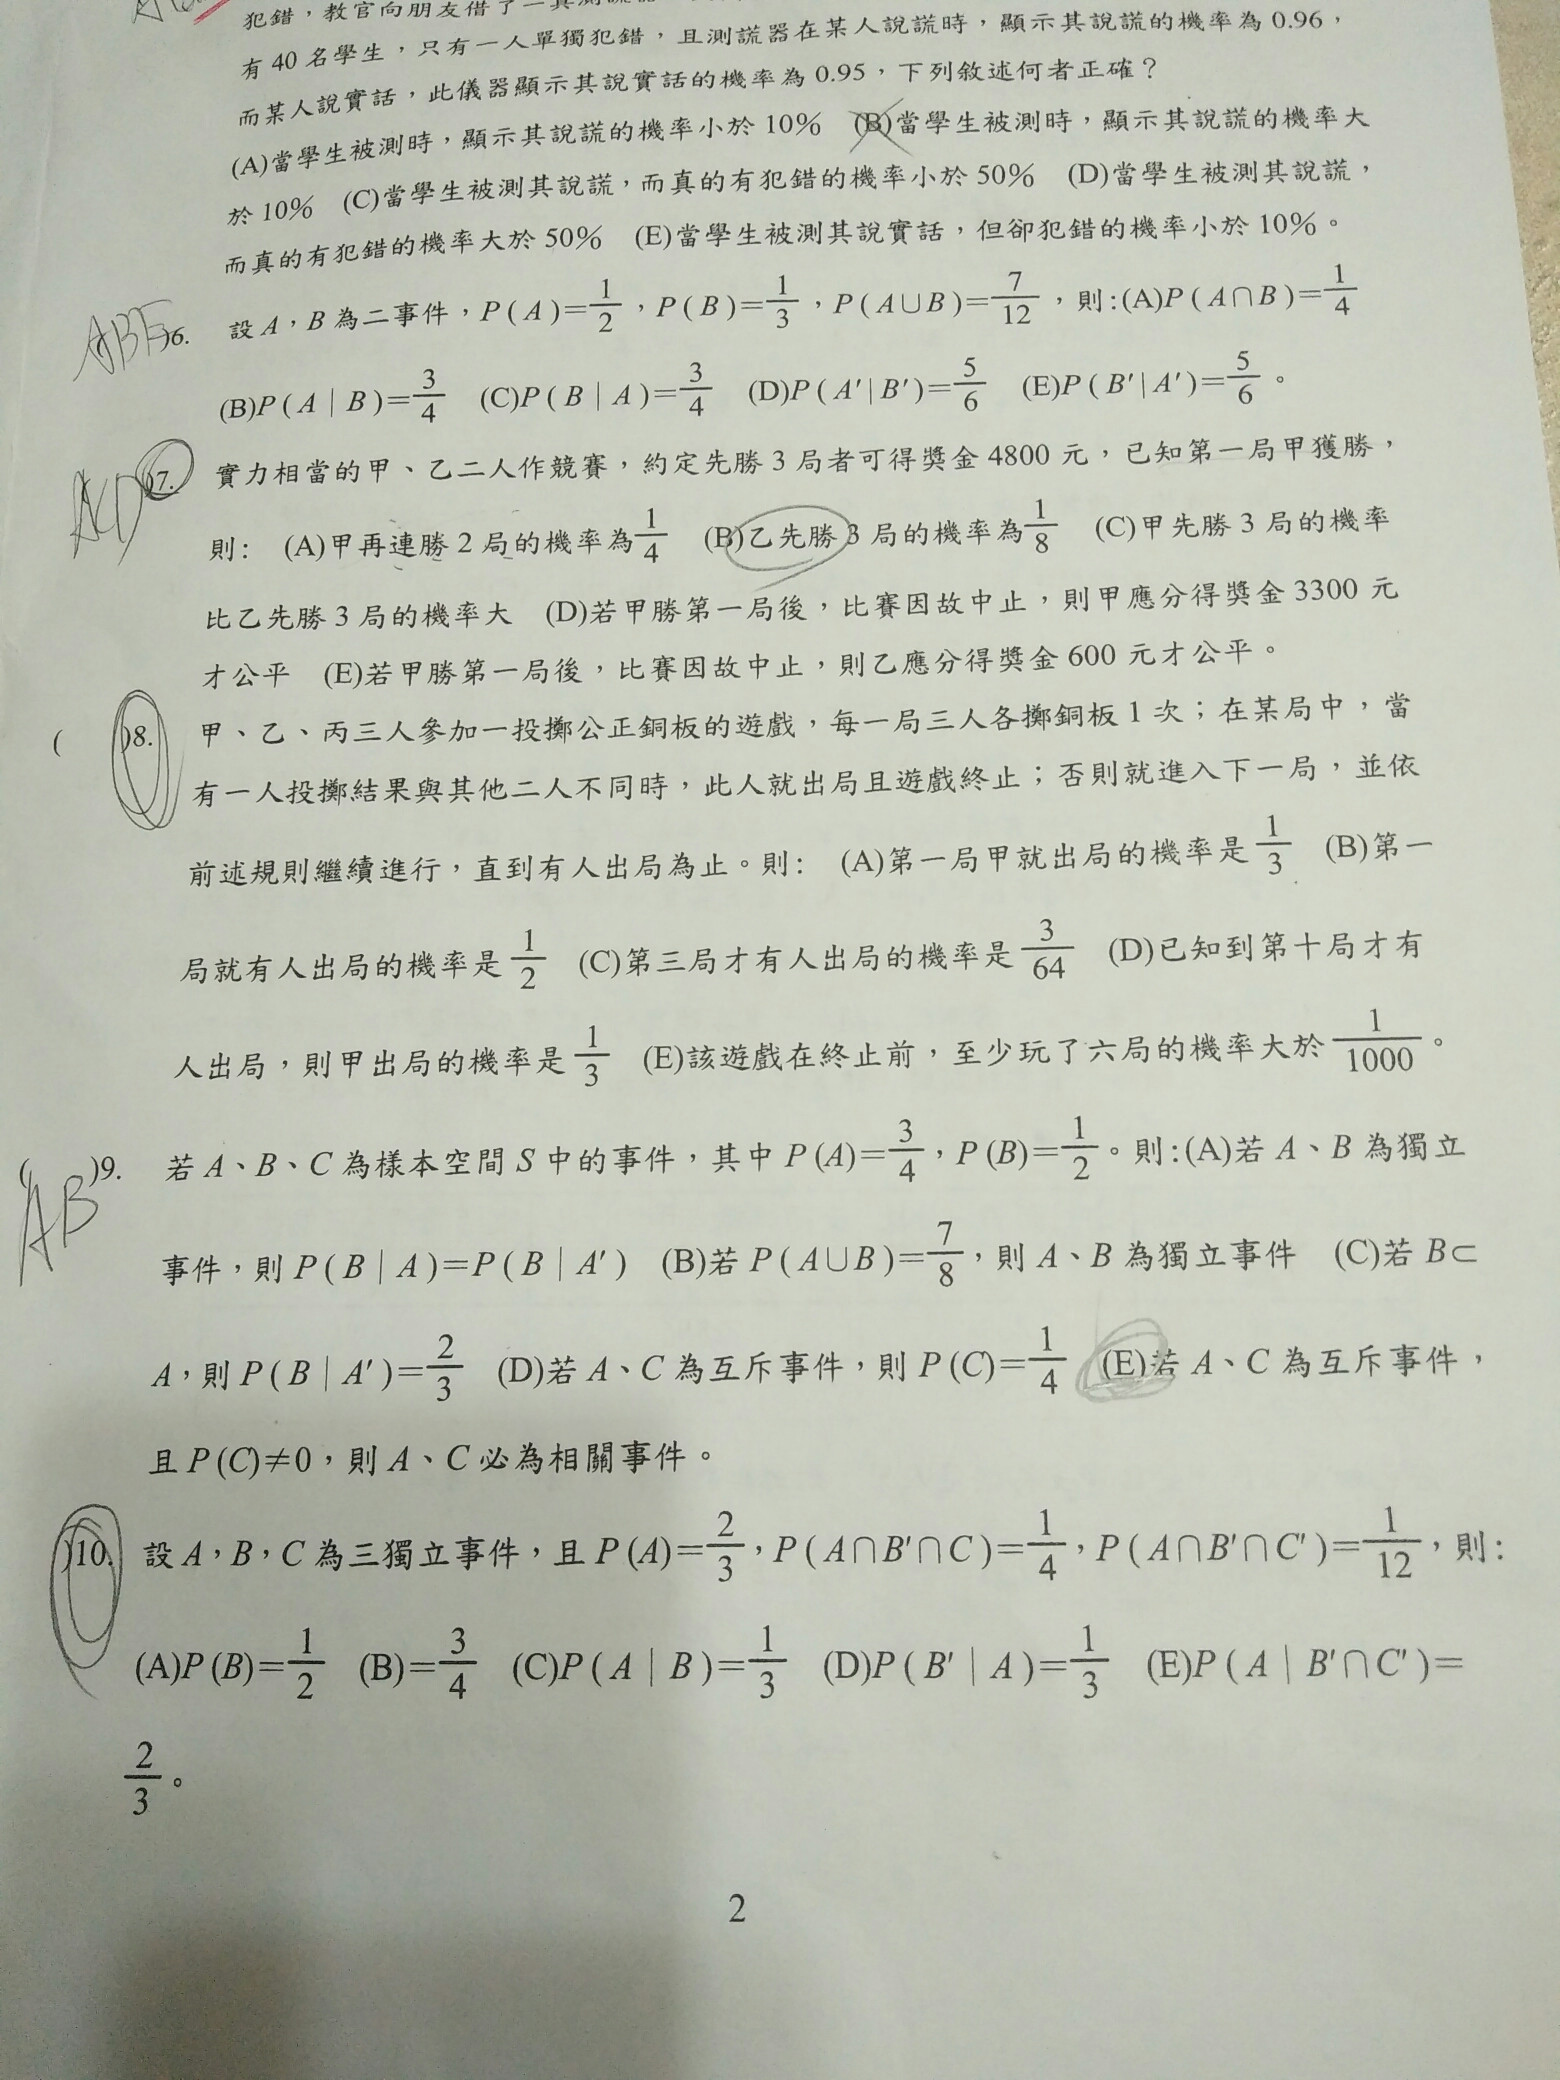 犯錯，教官向朋友借了一具測謊器
有 40 名學生，只有一人單獨犯錯，且測謊器在某人說謊時，顯示其說謊的機率為 0.96，
而某人說實話，此儀器顯示其說實話的機率為 0.95，下列敘述何者正確？
(A)當學生被測時，顯示其說謊的機率小於 10％ (B)當學生被測時，顯示其說謊的機率大
於 10％ (C)當學生被測其說謊，而真的有犯錯的機率小於 50％ (D)當學生被測其說謊，
而真的有犯錯的機率大於 50％ (E)當學生被測其說實話，但卻犯錯的機率小於 10％。
ABE )6. 設 A，B 為二事件，P(A)=1/2，P(B)=1/3，P(A∪B)=7/12，則:(A)P(A∩B)=1/4
(B)P(A｜B)=3/4 (C)P(B｜A)=3/4 (D)P(A'|B')=5/6 (E)P(B'|A')=5/6。
ACD )7. 實力相當的甲、乙二人作競賽，約定先勝 3 局者可得獎金 4800 元，已知第一局甲獲勝，
則： (A)甲再連勝 2 局的機率為1/4 (B)乙先勝 3 局的機率為1/8 (C)甲先勝 3 局的機率
比乙先勝 3 局的機率大 (D)若甲勝第一局後，比賽因故中止，則甲應分得獎金 3300 元
才公平 (E)若甲勝第一局後，比賽因故中止，則乙應分得獎金 600 元才公平。
( )8. 甲、乙、丙三人參加一投擲公正銅板的遊戲，每一局三人各擲銅板 1 次；在某局中，當
有一人投擲結果與其他二人不同時，此人就出局且遊戲終止；否則就進入下一局，並依
前述規則繼續進行，直到有人出局為止。則： (A)第一局甲就出局的機率是1/3 (B)第一
局就有人出局的機率是1/2 (C)第三局才有人出局的機率是3/64 (D)已知到第十局才有
人出局，則甲出局的機率是1/3 (E)該遊戲在終止前，至少玩了六局的機率大於1/1000。
( )9. 若 A、B、C 為樣本空間 S 中的事件，其中 P(A)=3/4，P(B)=1/2。則:(A)若 A、B 為獨立
AB
事件，則 P(B｜A)=P(B｜A') (B)若 P(A∪B)=7/8，則 A、B 為獨立事件 (C)若 B⊂
A，則 P(B｜A')=2/3 (D)若 A、C 為互斥事件，則 P(C)=1/4 (E)若 A、C 為互斥事件，
且 P(C)≠0，則 A、C 必為相關事件。
)10. 設 A，B，C 為三獨立事件，且 P(A)=2/3，P(A∩B'∩C)=1/4，P(A∩B'∩C')=1/12，則：
(A)P(B)=1/2 (B)=3/4 (C)P(A｜B)=1/3 (D)P(B'｜A)=1/3 (E)P(A｜B'∩C')=
2/3。
2